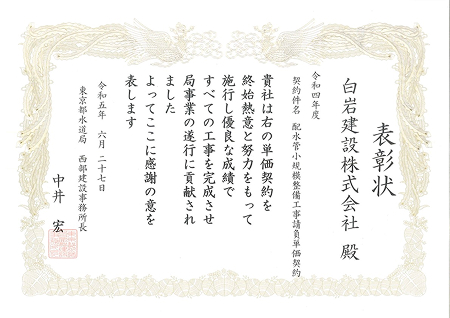 表彰状
白岩建設株式会社 殿
令和四年度
契約件名 配水管小規模整備工事請負単価契約
貴社は右の単価契約を
終始熱意と努力をもって
施行し優良な成績で
すべての工事を完成させ
局事業の遂行に貢献され
ました
よってここに感謝の意を
表します
令和五年 六月 二十七日
東京都水道局 西部建設事務所長
中井 宏